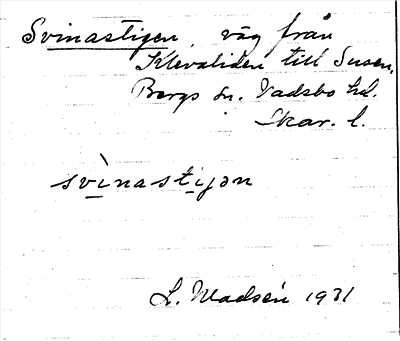 Svinastigen, väg från
Klevaliden till Susen,
Bergs sn. Vadsbo hd.
Skar. l.
svìnastiɟən
L. Madsén 1931